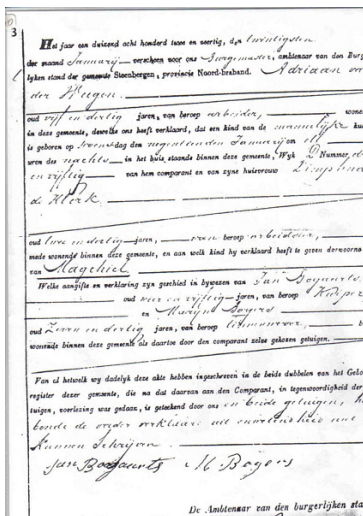 3
Het jaar een duizend acht honderd twee en veertig, den twintigsten
der maand Januarij verscheen voor ons Burgemeester, ambtenaar van den Burg
lyken stand der gemeente Steenbergen, provincie Noord-braband. Adriaan
der Heugen.
oud vyf en dertig jaren, van beroep arbeider, wone
in deze gemeente, dewelke ons heeft verklaard, dat een kind van de mannelijke
is geboren op den negentienden Januarij
uren des nachts in het huis, staande binnen deze gemeente, Wyk D Nummer,
en vijftig van hem comparant en van zyne huisvrouw
de Klerk
oud twee en dertig jaren, van beroep arbeidster,
mede wonende binnen deze gemeente, en aan welk kind hy verklaard heeft te geven
van Magchiel
Welke aangifte en verklaring zyn geschied in bywezen van Jan Bogaerts,
oud vier en vijftig jaren, van beroep Kuiper
en Marijn Bogers
oud Zeven en dertig jaren, van beroep
wonende binnen deze gemeente als daartoe door den comparant zelve gekozen getuigen.
Van al hetwelk wy dadelyk deze akte hebben ingeschreven in de beide dubbelen van het Gebo
register dezer gemeente, die na dat daarvan aan den Comparant, in tegenwoordigheid der
tuigen, voorlezing was gedaan, is geteekend door ons en beide getuigen,
de vader verklaard uit onwetenheid niet
kunnen Schrijven.
Jan Bogaerts M Bogers
De Ambtenaar van den burgerlijken sta